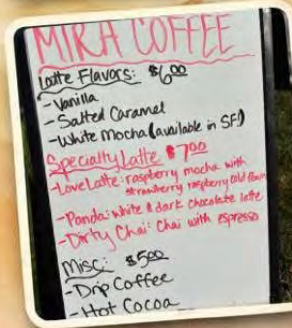 MIRA COFFEE
Latte Flavors: $6.00
-Vanilla
-Salted Caramel
-White Mocha (available in SF!)
Specialty Latte $7.00
-Love Latte: raspberry mocha with
strawberry raspberry cold foam
-Panda: white & dark chocolate latte
-Dirty Chai: Chai with espresso
Misc: $5.00
-Drip Coffee
-Hot Cocoa